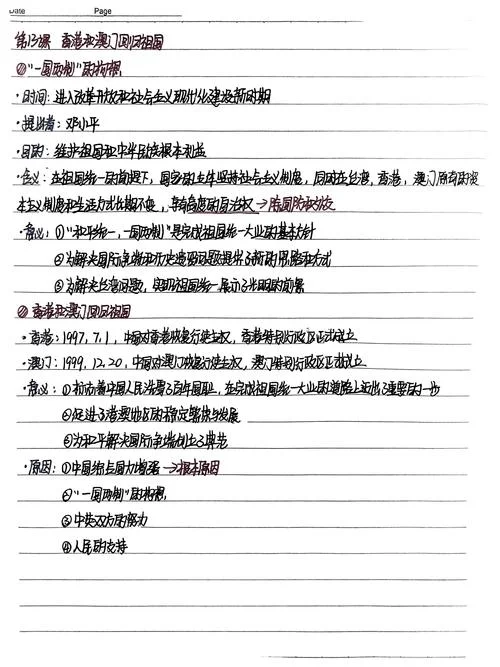 Date Page
第13课 香港和澳门回归祖国
①“一国两制”的构想
·时间:进入改革开放和社会主义现代化建设新时期
·提出者:邓小平
·目的:维护祖国和中华民族根本利益
·含义:在祖国统一的前提下,国家的主体坚持社会主义制度,同时在台湾,香港,澳门原有的资
本主义制度和生活方式长期不变,享有高度的自治权→除国防和外交
·意义:①“和平统一,一国两制”是完成祖国统一大业的基本方针
②为解决国际争端和历史遗留问题提出了新的思路和方式
③为解决台湾问题,实现祖国统一展示了光明的前景
②香港和澳门回归祖国
·香港:1997,7,1,中国对香港恢复行使主权,香港特别行政区正式成立
·澳门:1999,12,20,中国对澳门恢复行使主权,澳门特别行政区正式成立
·意义:①标志着中国人民洗雪了百年国耻,在完成祖国统一大业的道路上迈出了重要的一步
②促进了港澳地区的稳定繁荣与发展
③为和平解决国际争端创立了典范
·原因:①中国综合国力增强→根本原因
②“一国两制”的构想
③中英双方的努力
④人民的支持